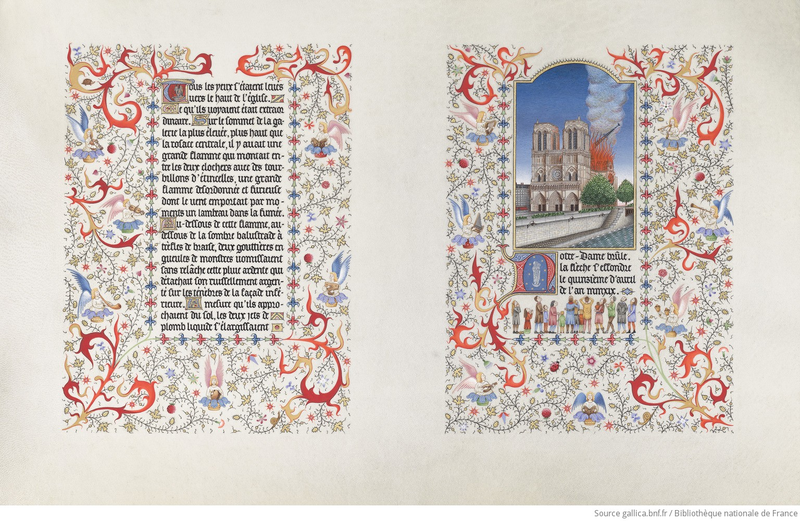 Tous les yeux s'étaient levés
vers le haut de l'église.
Ce qu'ils voyaient était extraor
dinaire. Sur le sommet de la ga-
lerie la plus élevée, plus haut que
la rosace centrale, il y avait une
grande flamme qui montait en-
tre les deux clochers avec des tour-
billons d'étincelles, une grande
flamme désordonnée et furieuse
dont le vent emportait par mo-
ments un lambeau dans la fumée.
Au-dessous de cette flamme, au-
dessous de la sombre balustrade à
trèfles de braise, deux gouttières en
gueules de monstres vomissaient
sans relâche cette pluie ardente qui
détachait son ruissellement argen-
té sur les ténèbres de la façade infé-
rieure. A mesure qu'ils appro-
chaient du sol, les deux jets de
plomb liquide s'élargissaient
Notre-Dame brûle,
la flèche s'effondre
le quinzième d'avril
de l'an mmxix.
Source gallica.bnf.fr / Bibliothèque nationale de France